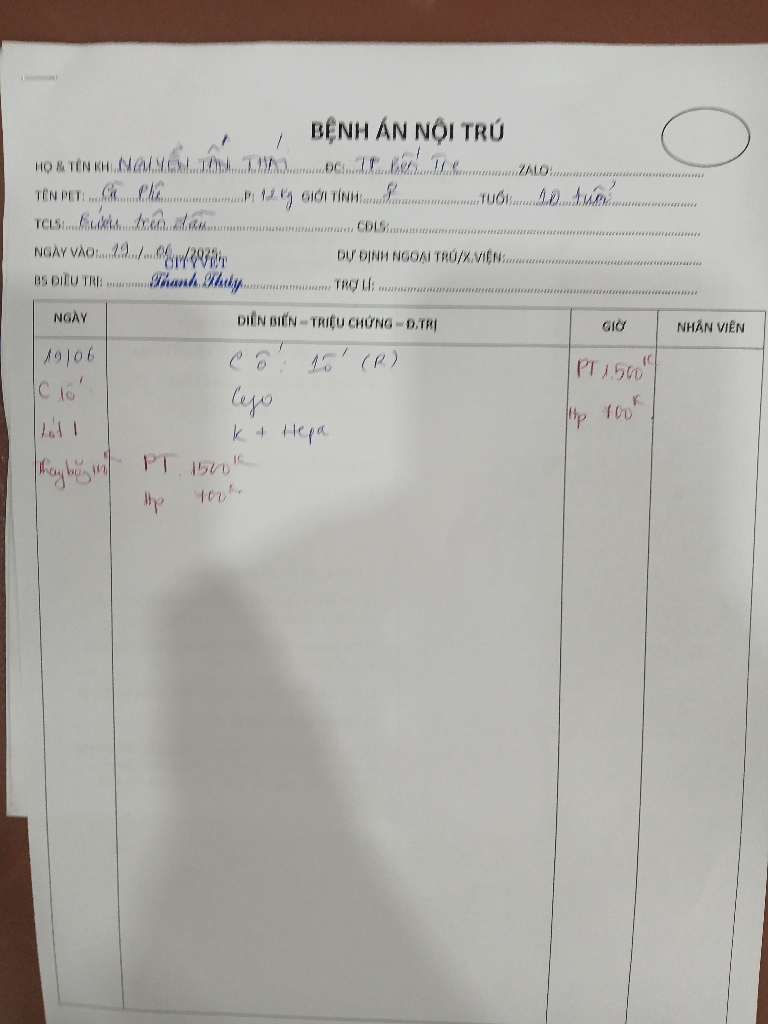 BỆNH ÁN NỘI TRÚ
HỌ & TÊN KH: NGUYỄN TẤN THÁI ĐC: TP Bến Tre ZALO:
TÊN PET: Cà Phê P: 12 kg GIỚI TÍNH: ♀ TUỔI: 10 tuổi
TCLS: Bướu trên đầu CĐLS:
NGÀY VÀO: 19 / 06 /2025; DỰ ĐỊNH NGOẠI TRÚ/X.VIỆN:
CITYVET
BS ĐIỀU TRỊ: Thanh Thúy TRỢ LÍ:
NGÀY DIỄN BIẾN – TRIỆU CHỨNG – Đ.TRỊ GIỜ NHÂN VIÊN
19/06 C Ố: 1ố (R) PT 1.500K
C 1ố Hp 700K
K + Hepa
PT 1500K
Hp 700K